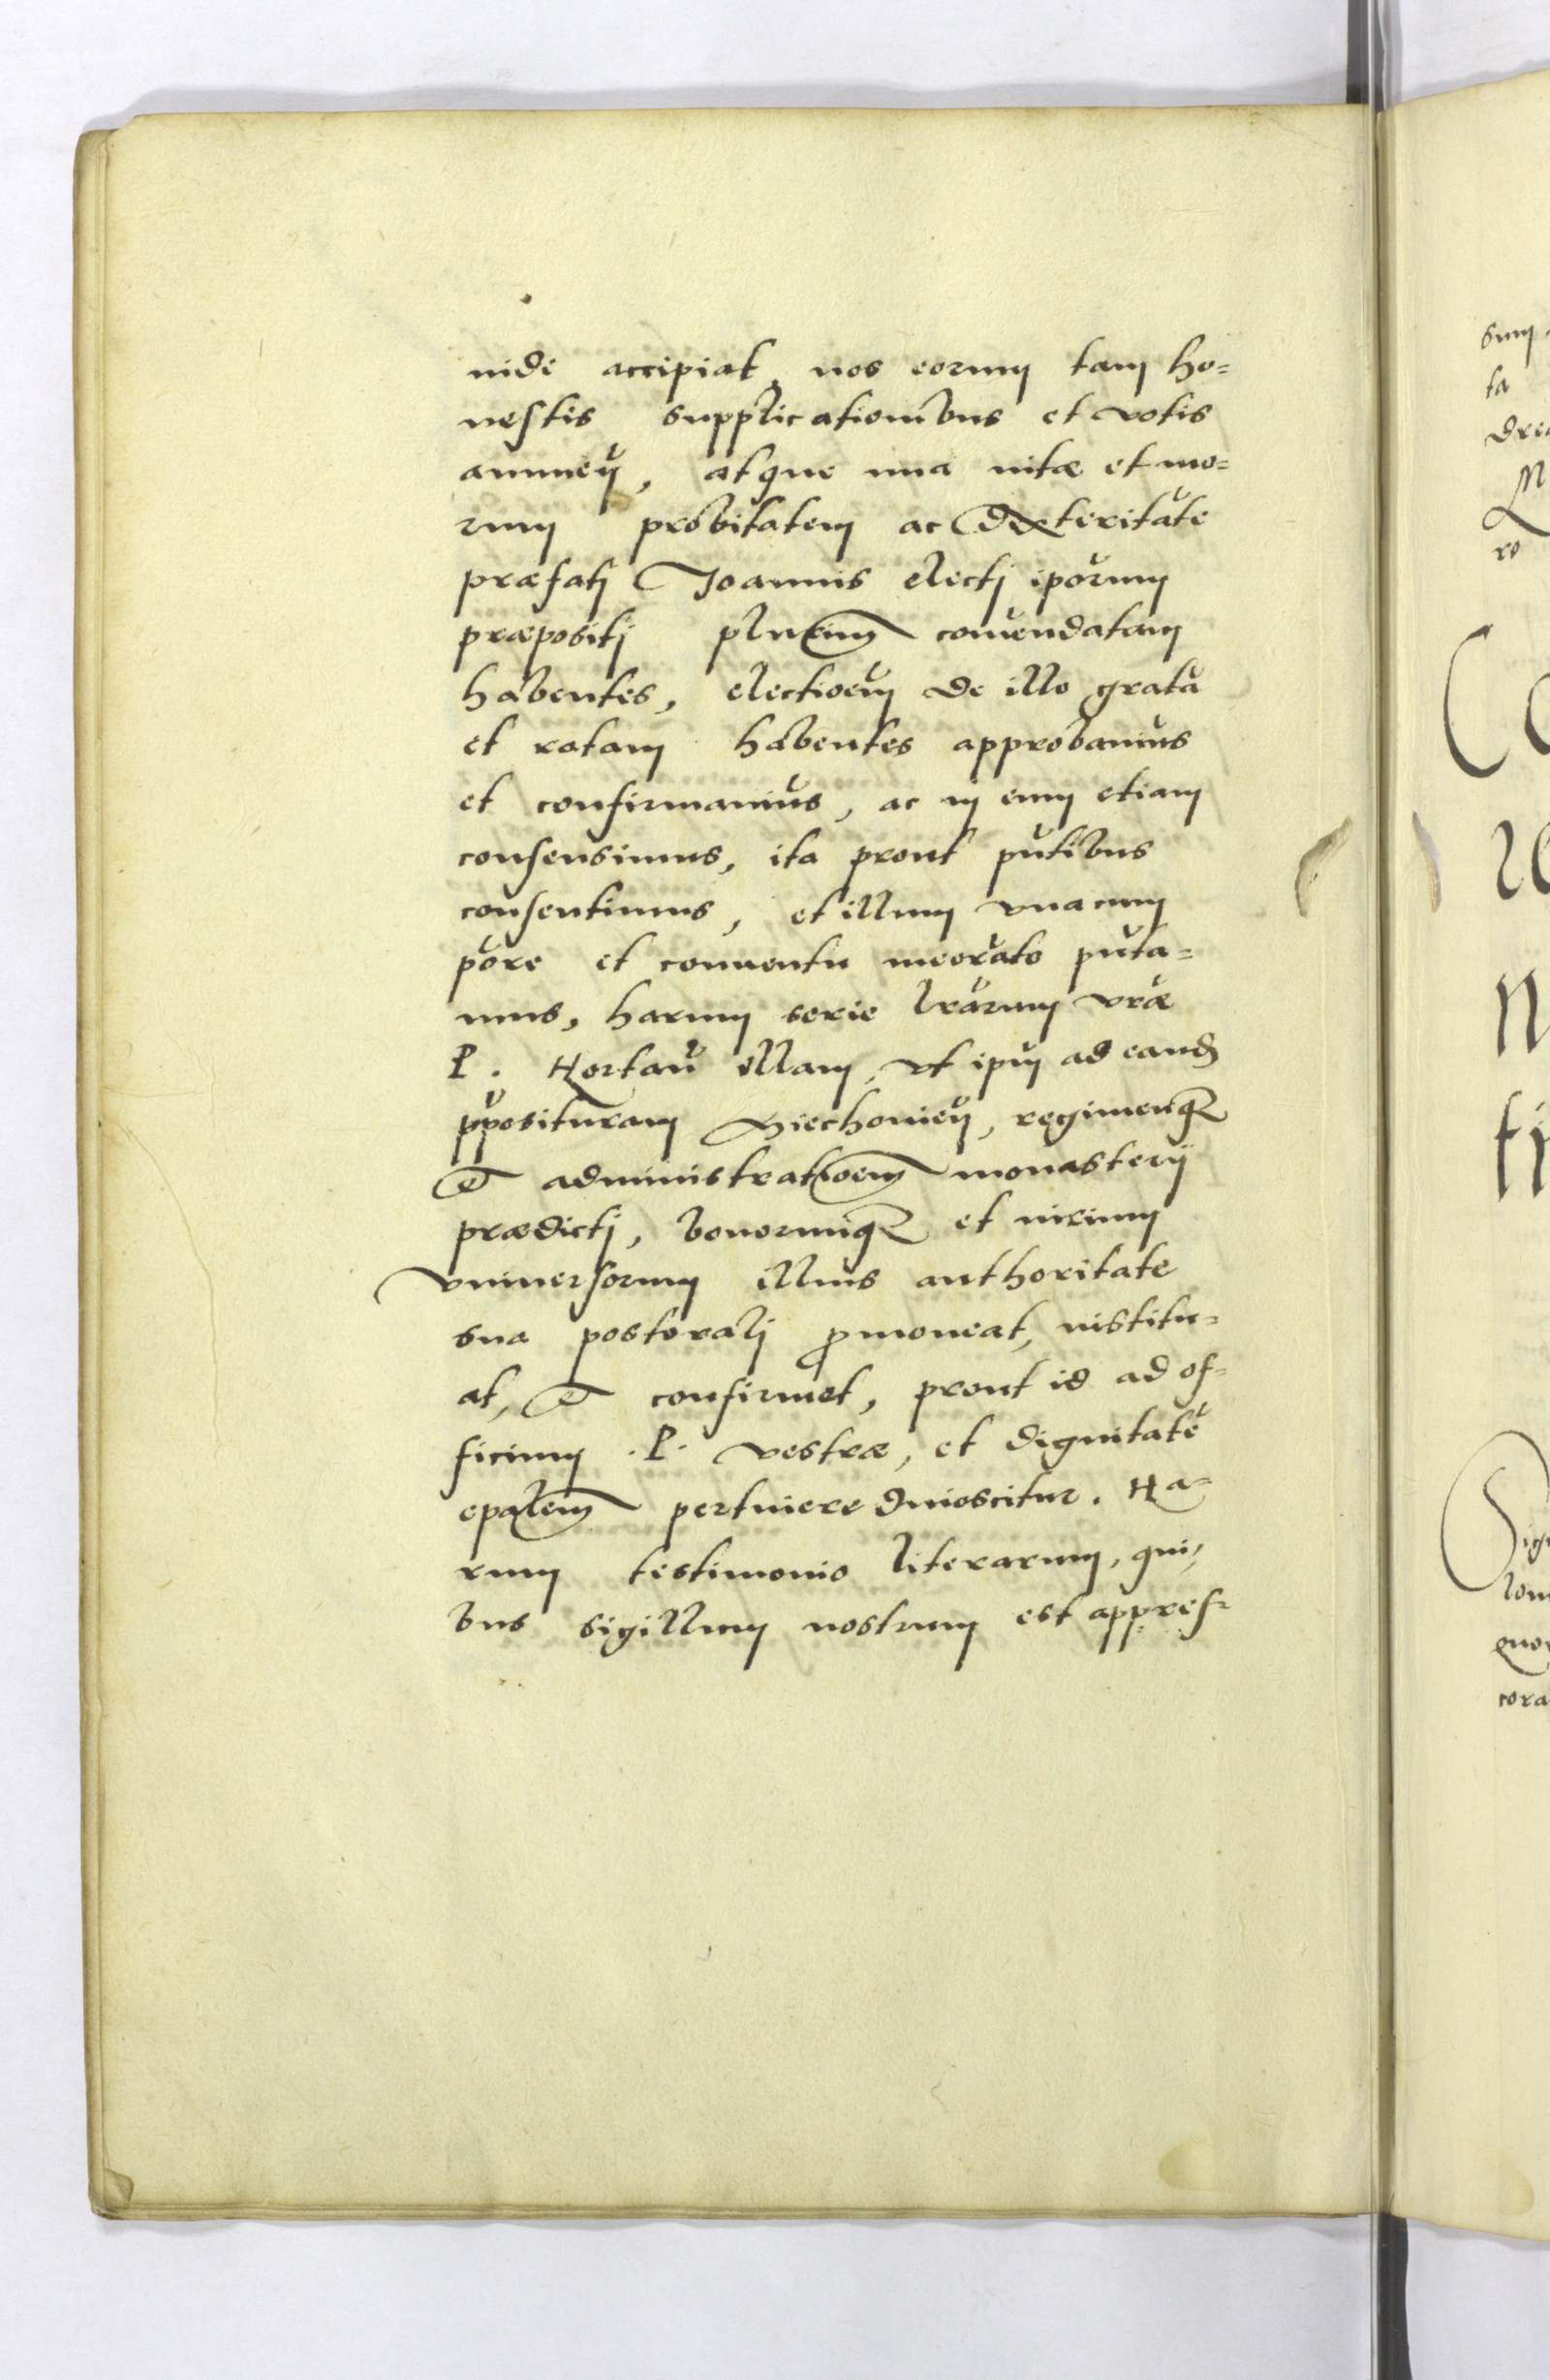 inde accipiat, nos eorum tam ho-
nestis supplicationibus et votis
annueñ, atque una vitæ et mo-
rum probitatem ac dexteritatẽ
præfatj Joannis electj ipõrum
præpositj plurium com̃endatam
habentes, electioẽm de illo gratã
et ratam habentes approbamus
et confirmamus, ac in eum etiam
consensimus, ita prout pñtibus
consentimus, et illum vnacum
põre et conuentu meorãto pñta-
mus, harum serie lrãrum vrã
P. Hortañ illam, vt ipm̃ ad eand
p̃posituram Miechovieñ, regimenq3
et administratioem monasterij
prædictj, bonorumq3 et virium
vniuersorum illius authoritate
sua pastoralj promoueat, institu-
at, et confirmet, prout id ad of-
ficium .P. vestræ, et dignitatẽ
epalem pertinere dinoscitur. Ha-
rum testimonio literarum, qui-
bus sigillum nostrum est appres-
sum
ta
dre
M
ro